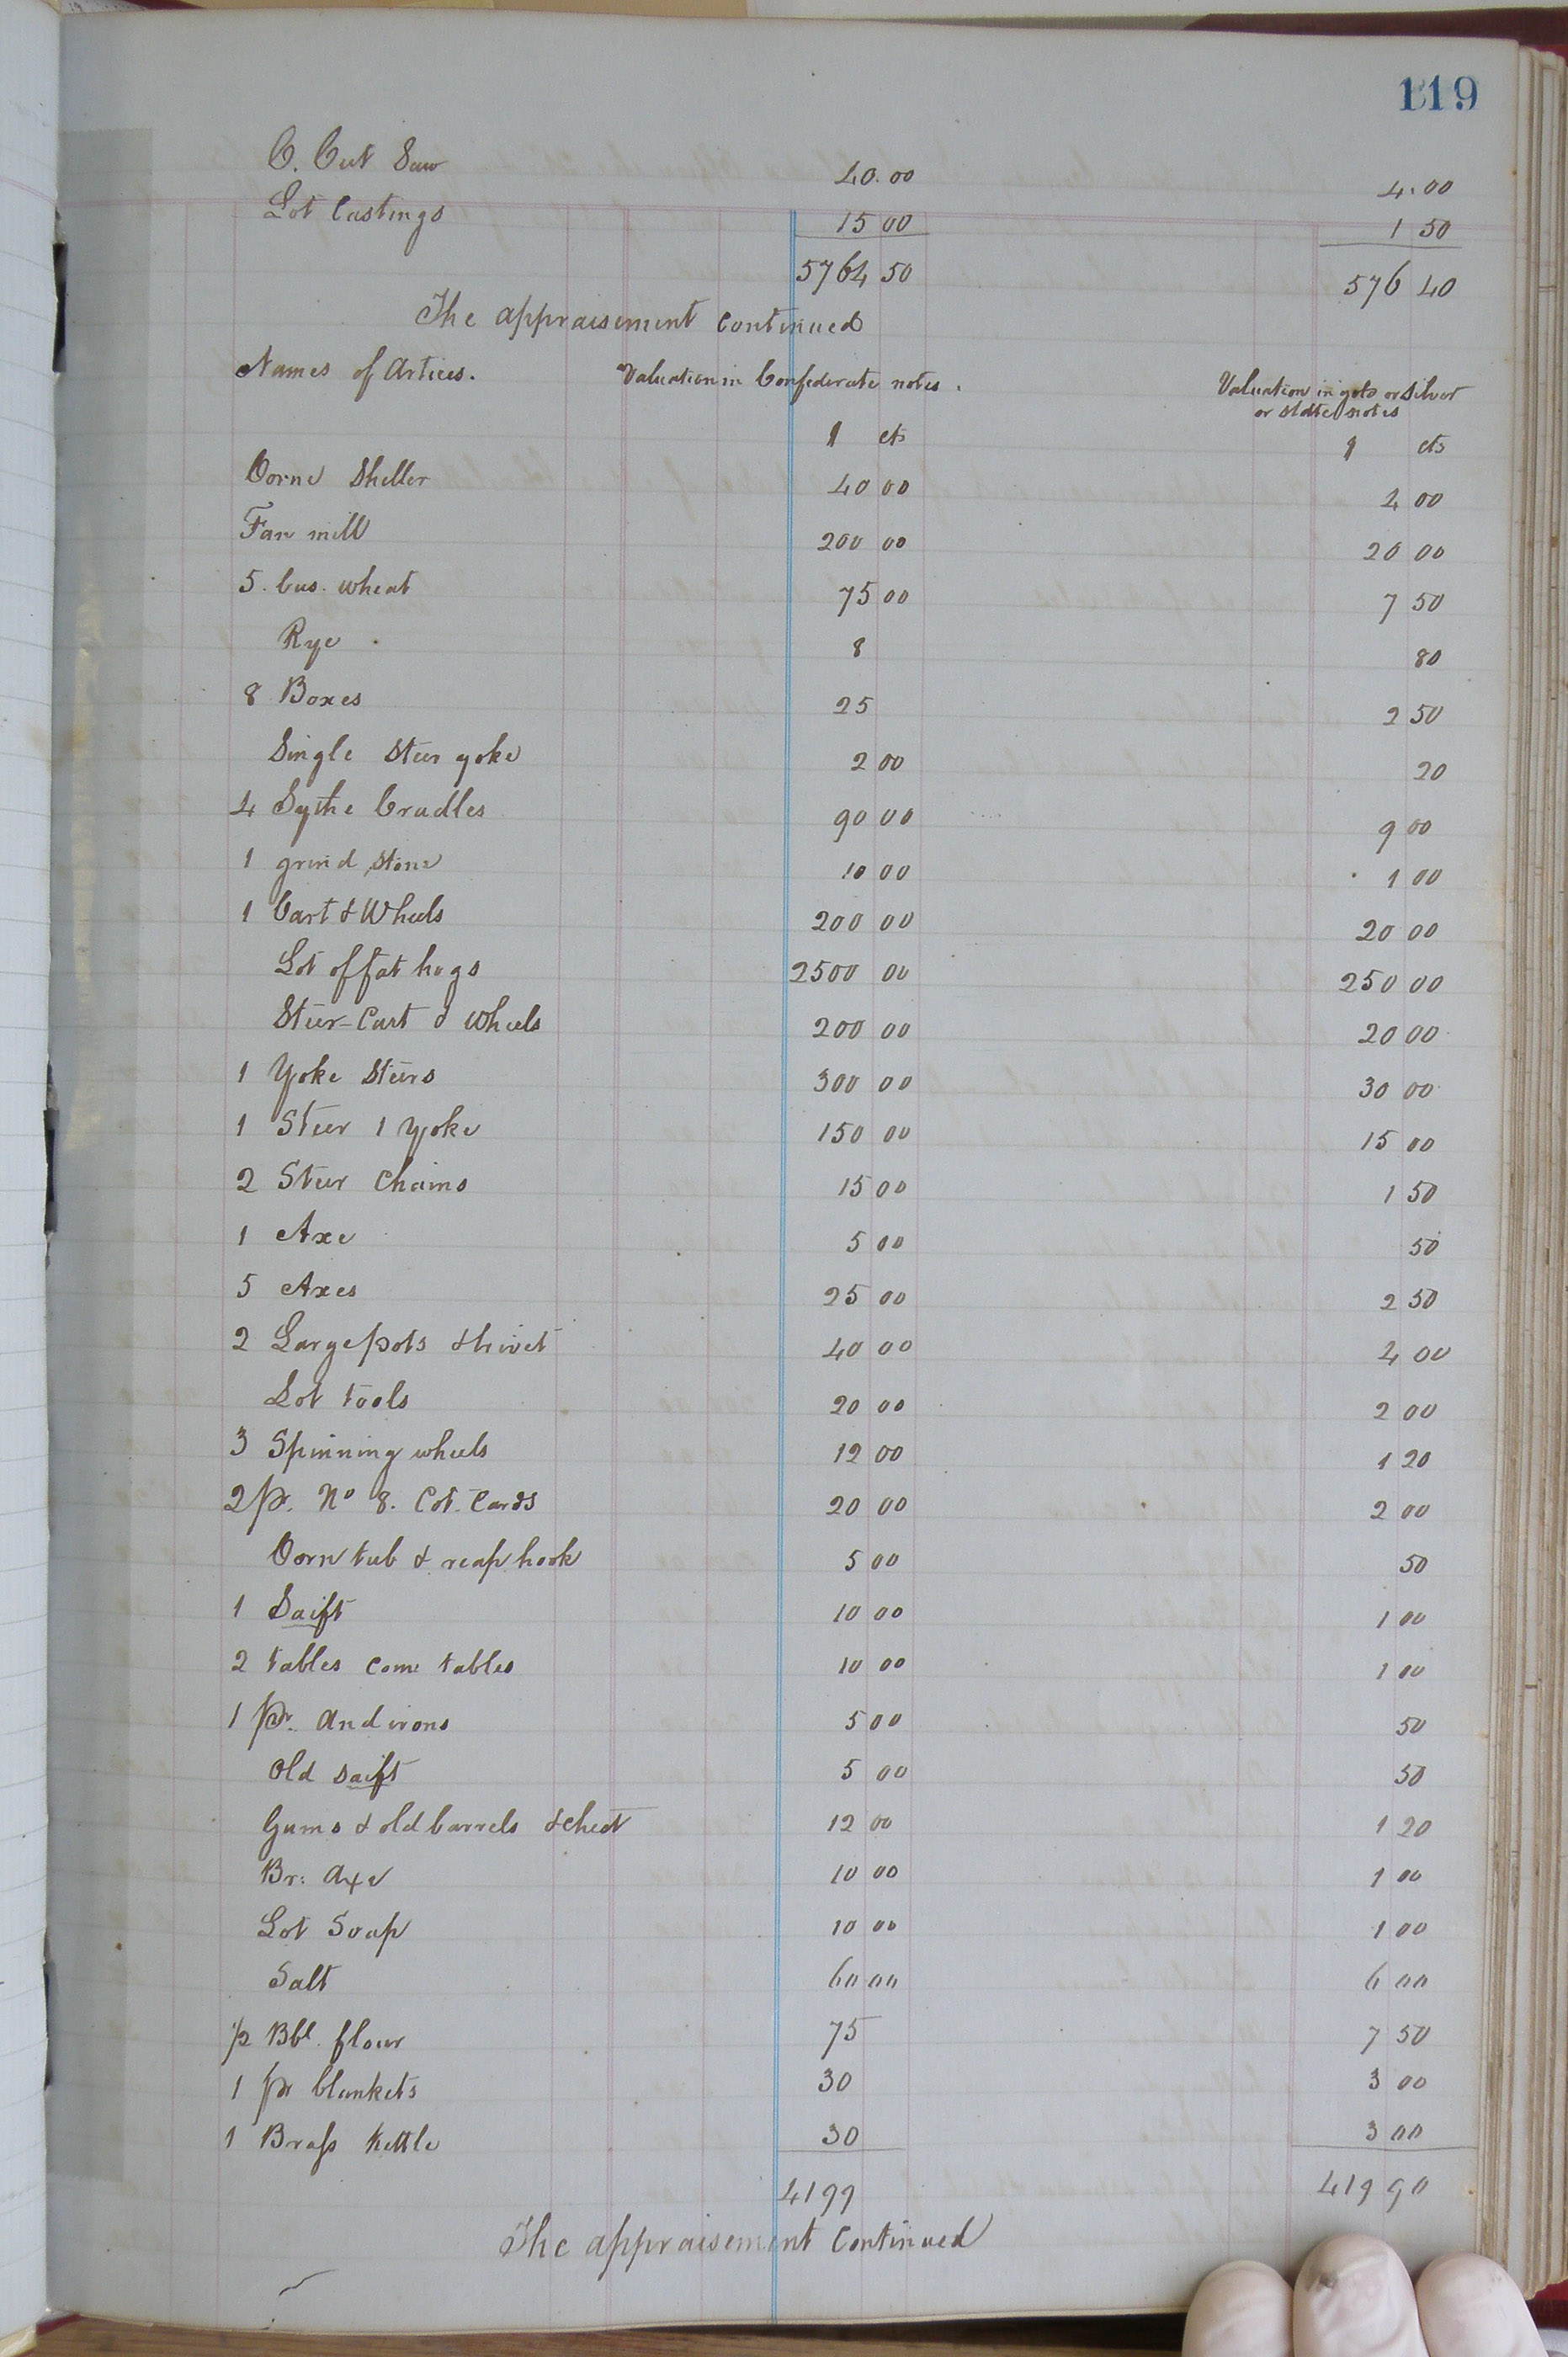 119
C. Cut Saw 40.00 4.00
Lot Castings 15 00 1 50
5764 50 576 40
The appraisement continued
Names of Artices. Valuation in Confederate notes. Valuation in gold or silver
or state notes
$ cts $ cts
Corn Sheller 40 00 4 00
Fan mill 200 00 20 00
5. bus. wheat 75 00 7 50
Rye 8 80
8 Boxes 25 2 50
Single Steer yoke 2 00 20
4 Sythe Cradles 90 00 9 00
1 grind stone 10 00 1 00
1 Cart & Wheels 200 00 20 00
Lot of fat hogs 2500 00 250 00
Steer-Cart & wheels 200 00 20 00
1 Yoke Steers 300 00 30 00
1 Steer 1 yoke 150 00 15 00
2 Steer Chains 15 00 1 50
1 Axe 5 00 50
5 Axes 25 00 2 50
2 Large pots & trivet 40 00 4 00
Lot tools 20 00 2 00
3 Spinning wheels 12 00 1 20
2 pr. No 8. Cot. Cards 20 00 2 00
Corn tub & reap hook 5 00 50
1 Saift 10 00 1 00
2 tables come tables 10 00 1 00
1 Pr. Andirons 5 00 50
Old saift 5 00 50
Gums & old barrels & chest 12 00 1 20
Br: Axe 10 00 1 00
Lot Soap 10 00 1 00
Salt 60 00 6 00
1/2 Bbl. flour 75 7 50
1 pr blankets 30 3 00
1 Brass Kettle 30 3 00
4199 419 90
The appraisement Continued